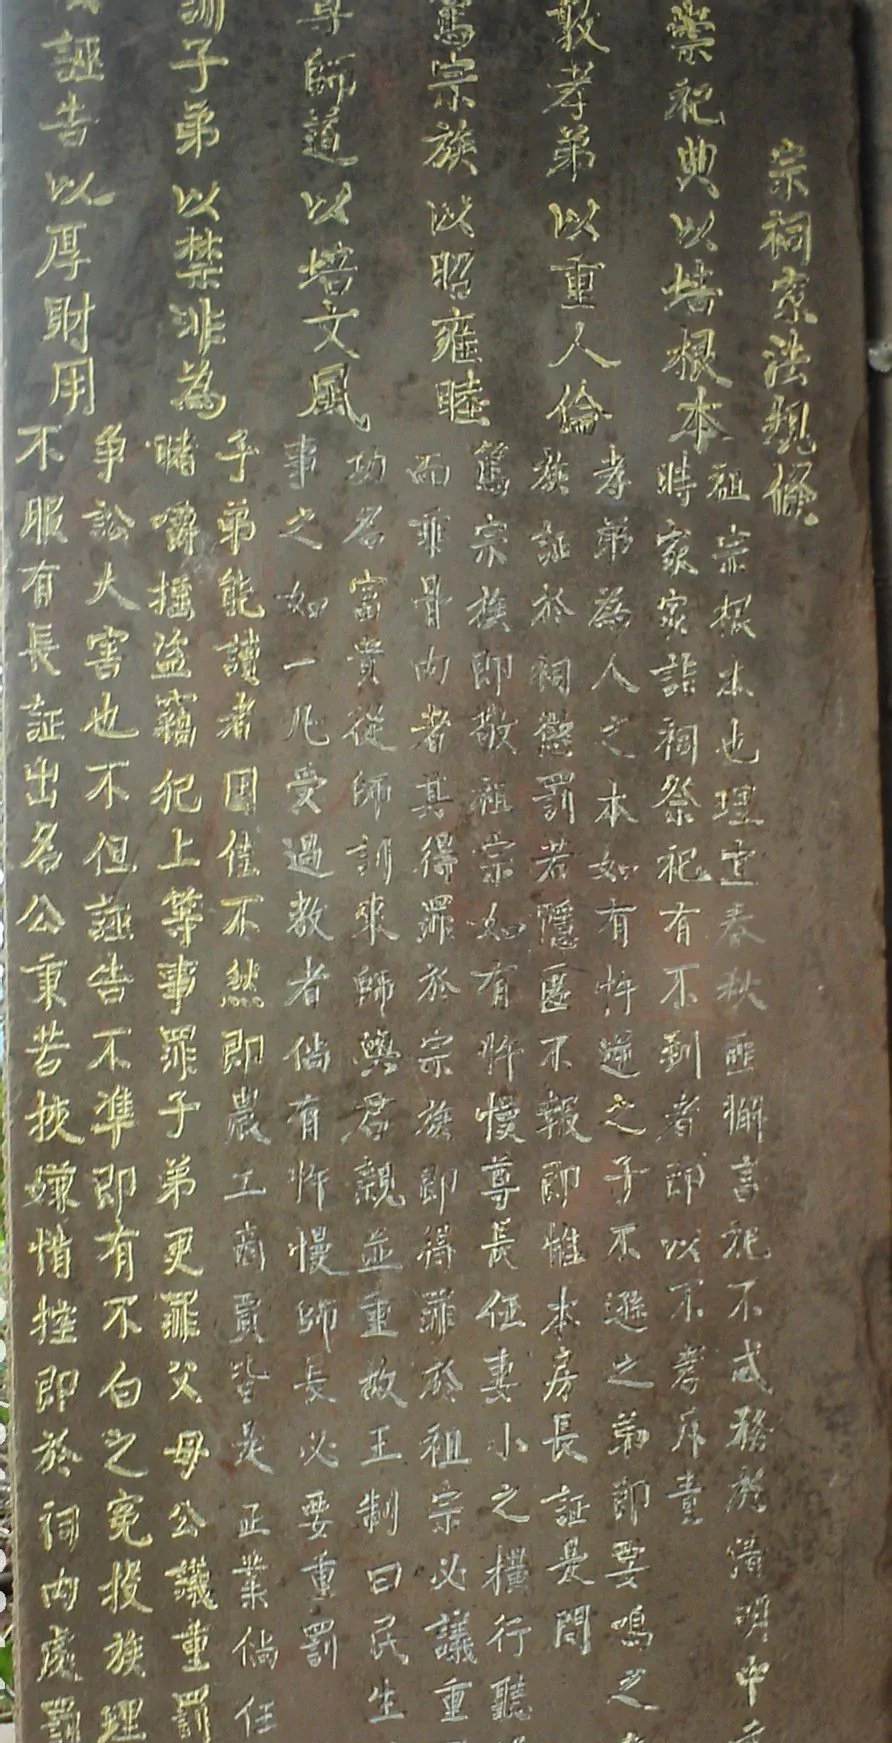 宗祠家法規條
崇祀典以培根本
祖宗根本也理宜春秋匪懈言祀不忒務於清明中
時家家詣祠祭祀有不到者即以不孝斥責
敦孝弟以重人倫
孝弟為人之本如有忤逆之子不遜之弟即要鳴之
族証於祠懲罰若隱匿不報即惟本房長証是問
篤宗族以昭雍睦
篤宗族即敬祖宗如有忤慢尊長任妻小之橫行聽
而乖骨肉者其得罪於宗族即得罪於祖宗必議重
尊師道以培文風
功名富貴從師訓來師與君親並重故王制曰民生
事之如一凡受過教者倘有忤慢師長必要重罰
訓子弟以禁非為
子弟能讀者固佳不然即農工商賈皆是正業倘任
賭嚼揺盜竊犯上等事罪子弟更罪父母公議重罰
誣告以厚財用
争訟大害也不但誣告不準即有不白之冤投族理
不服有長証出名公秉若挾嫌惰控即於祠內處罰